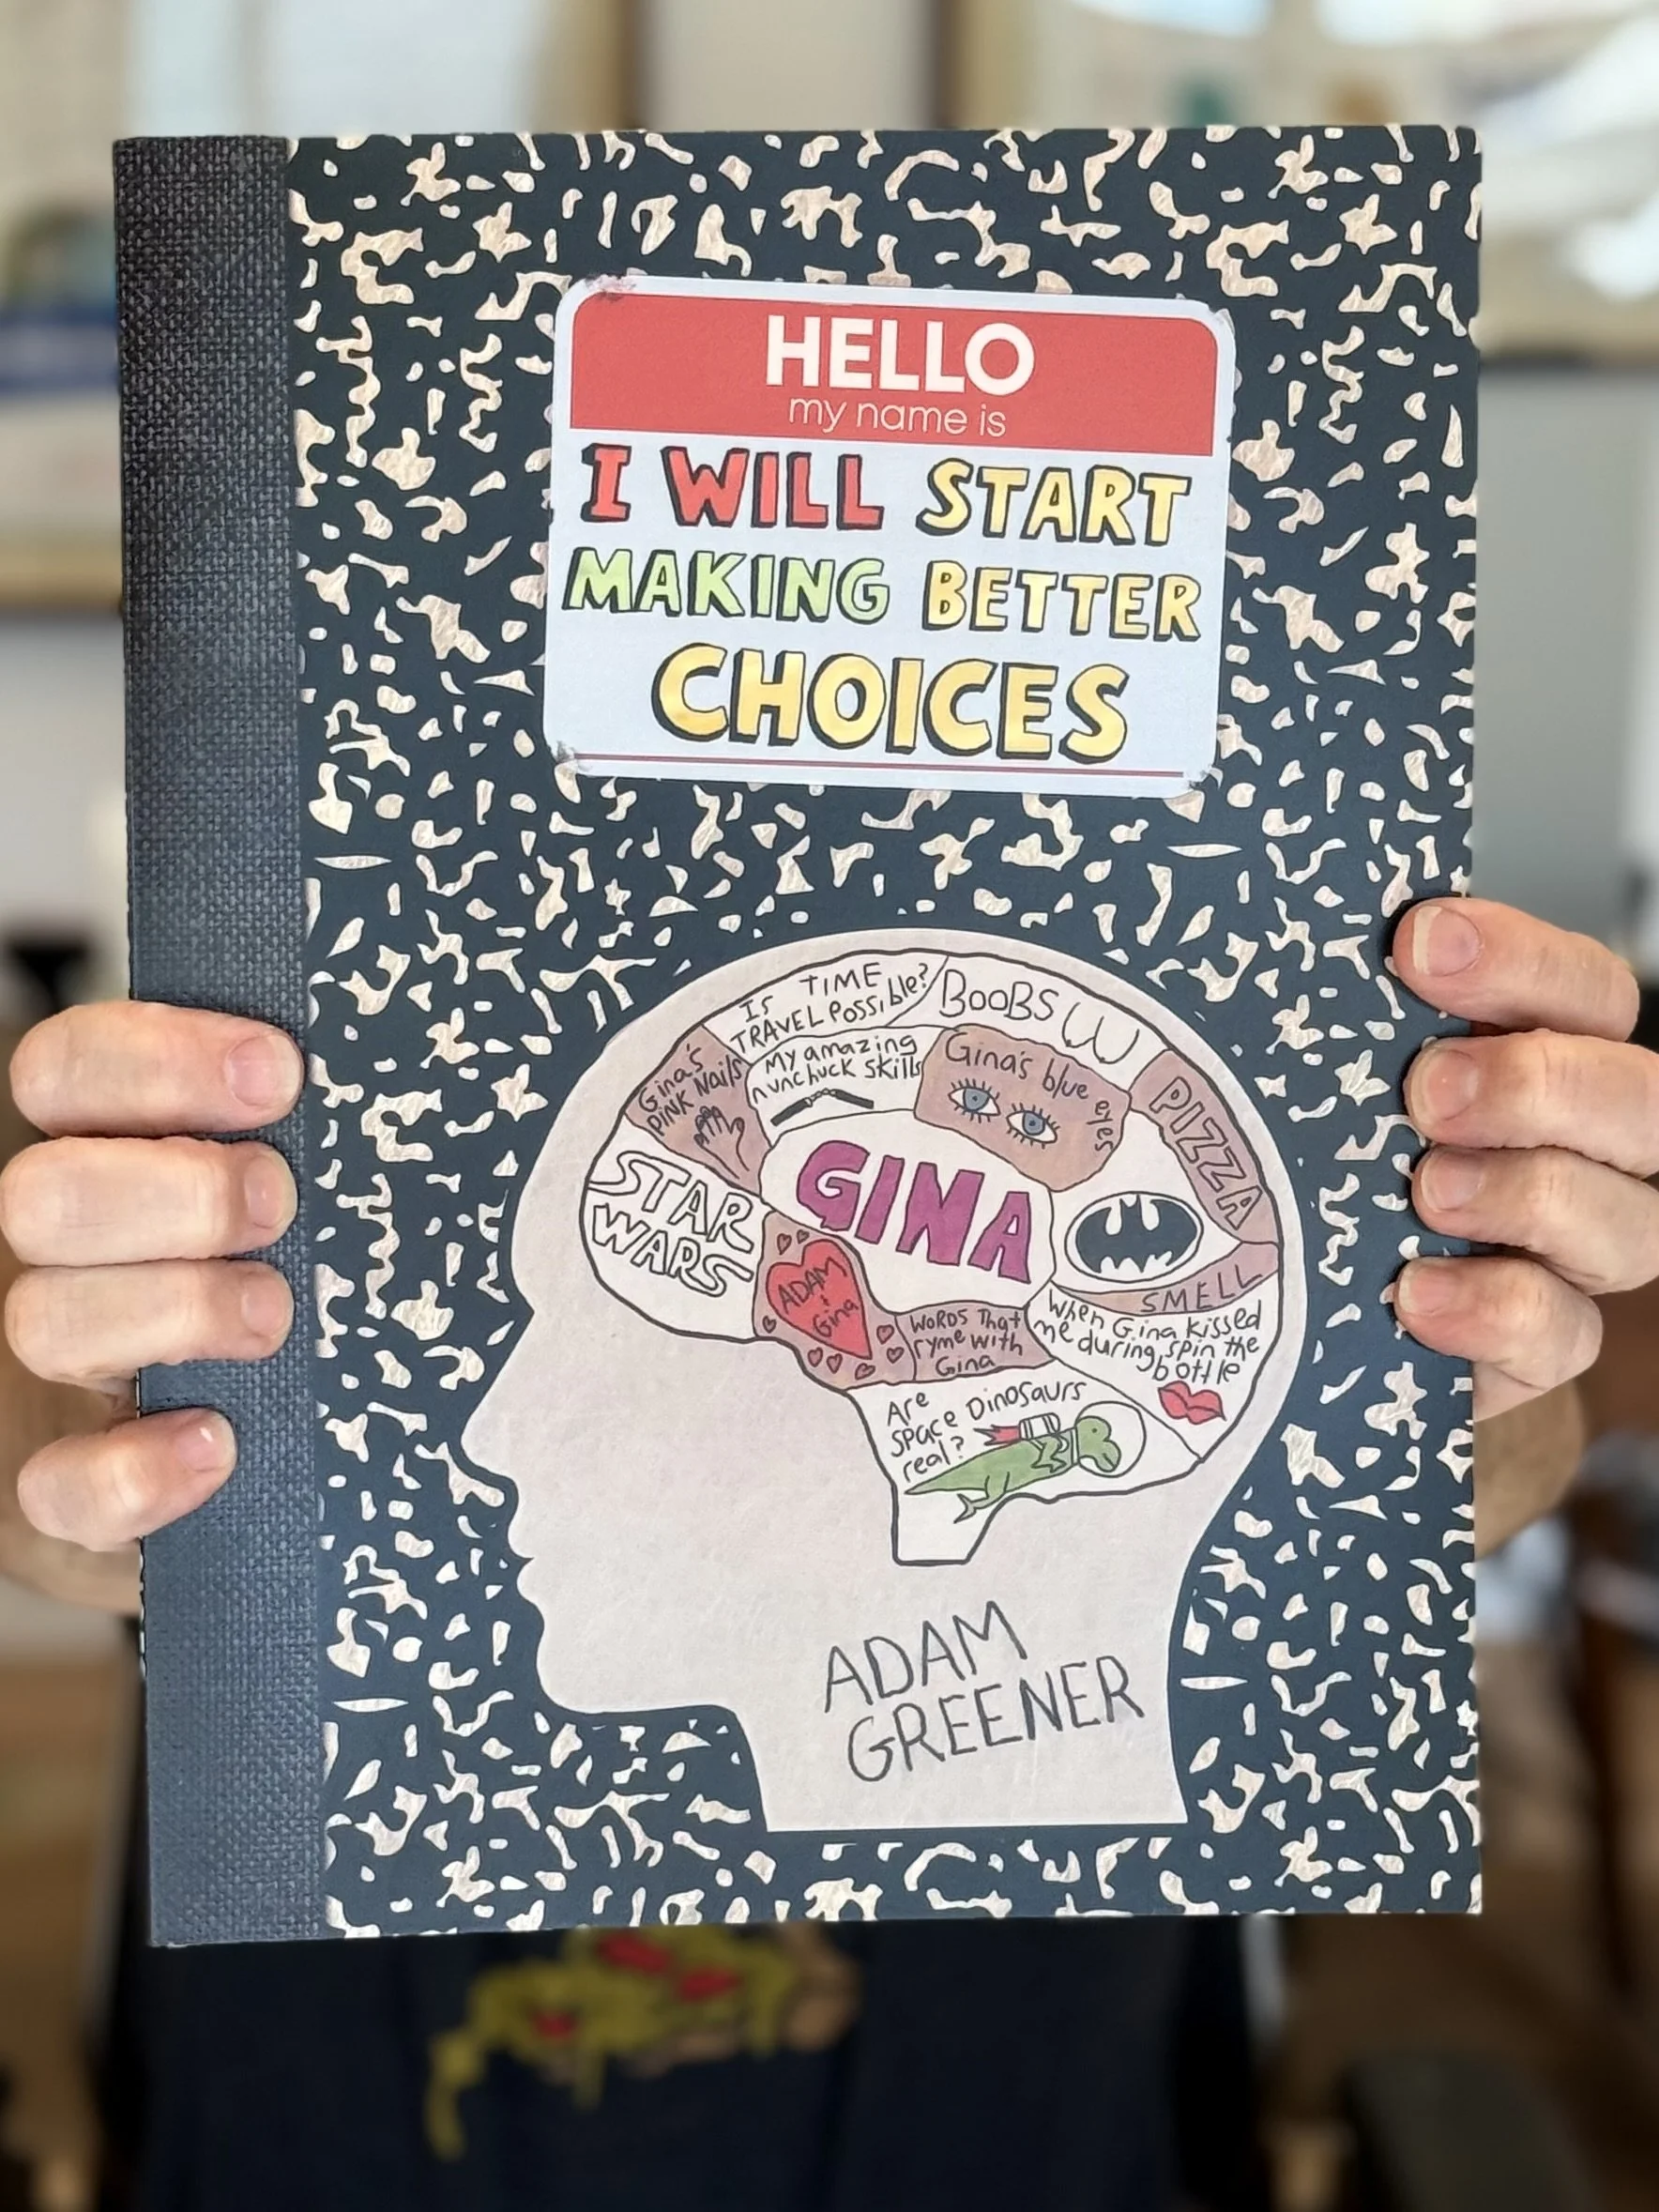 HELLO
my name is
I WILL START
MAKING BETTER
CHOICES
IS TIME
TRAVEL Possible?
BOOBS
Gina's
PINK Nails
My amazing
nunchuck skills
Gina's blue eyes
PIZZA
STAR
WARS
GINA
ADAM
+
Gina
WORDS That
ryme with
Gina
SMELL
When Gina kissed
me during spin the
bottle
Are
space Dinosaurs
real?
ADAM
GREENER